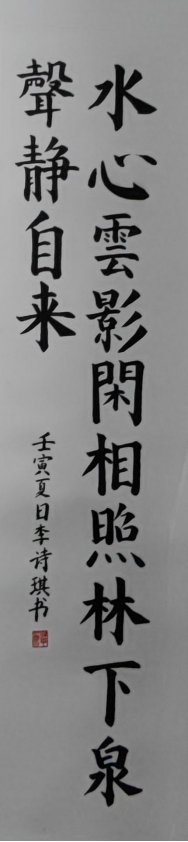 水心雲影閑相照林下泉
聲静自来
壬寅夏日李诗琪书